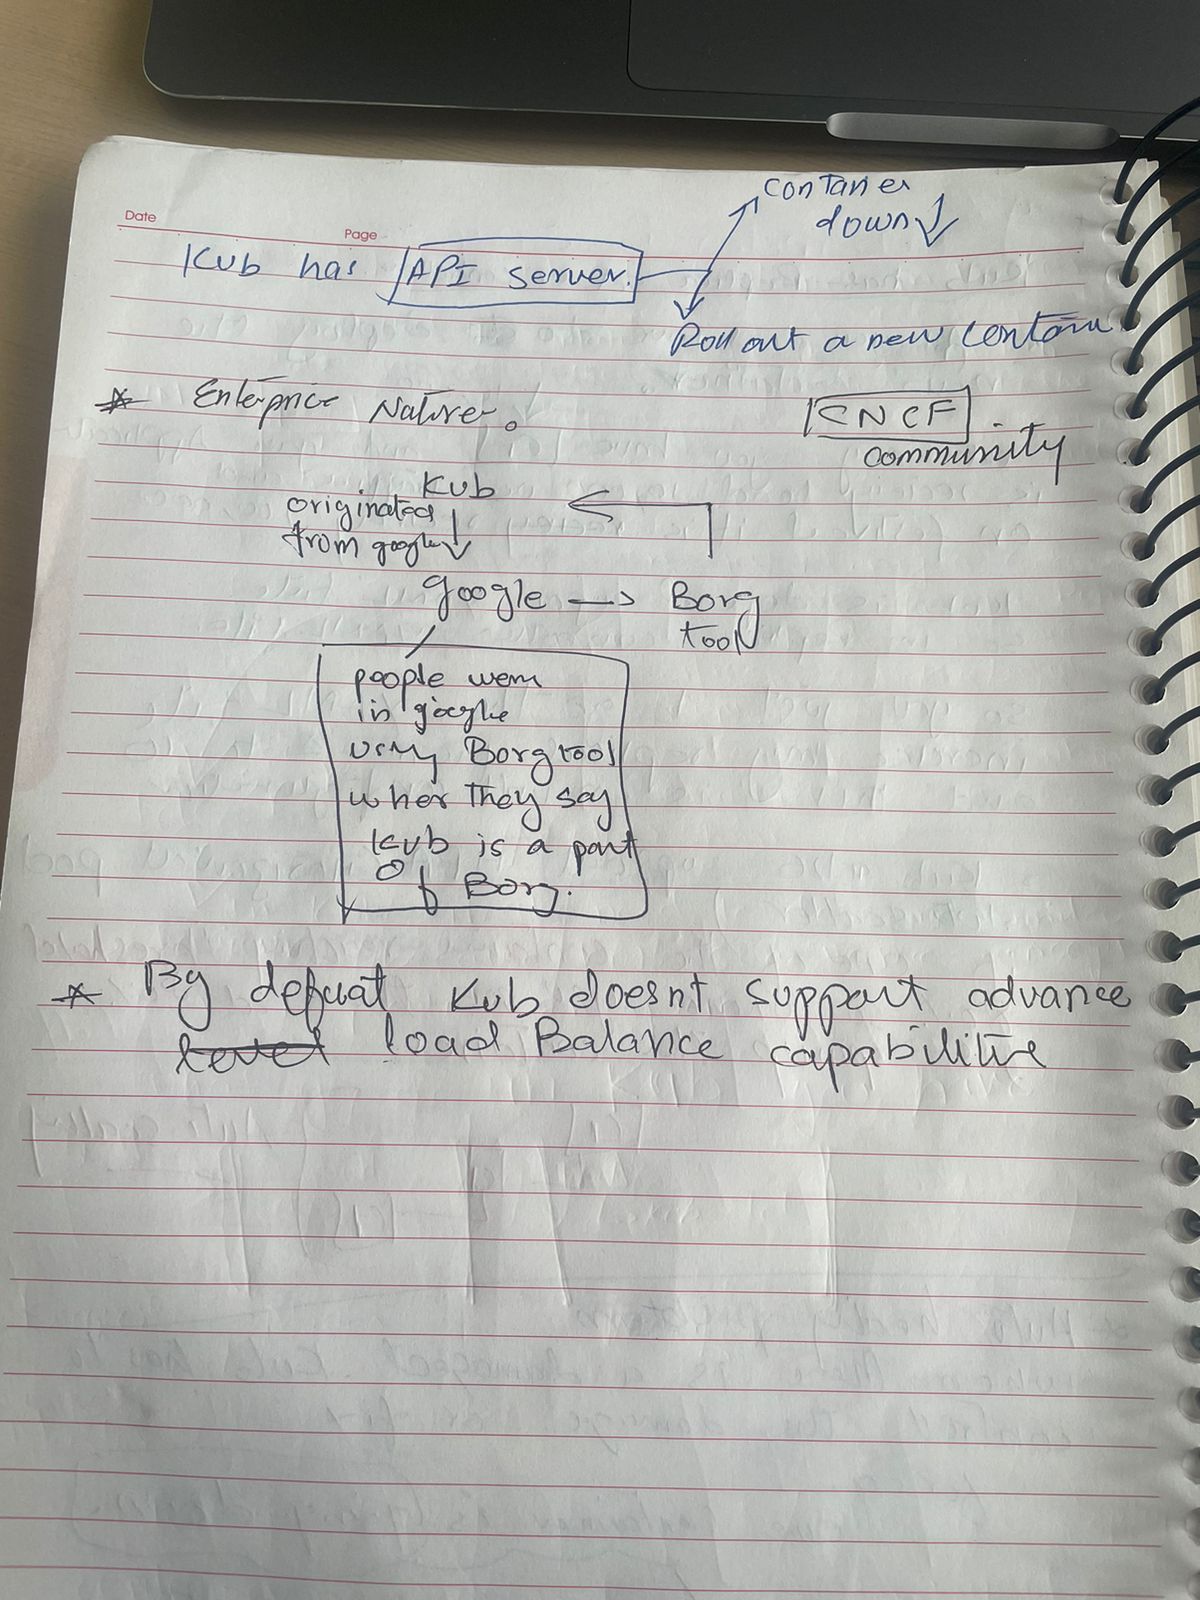 Date
Page
Kub has API server.
Contanier
down
Roll out a new Contain
Enterprice Nature.
CNCF
community
Kub
originated
from google
google → Borg
tool
people wern
in google
using Borg tool
wher they say
Kub is a part
Of Borg.
By defualt Kub doesnt support advance
level load Balance capabilitie